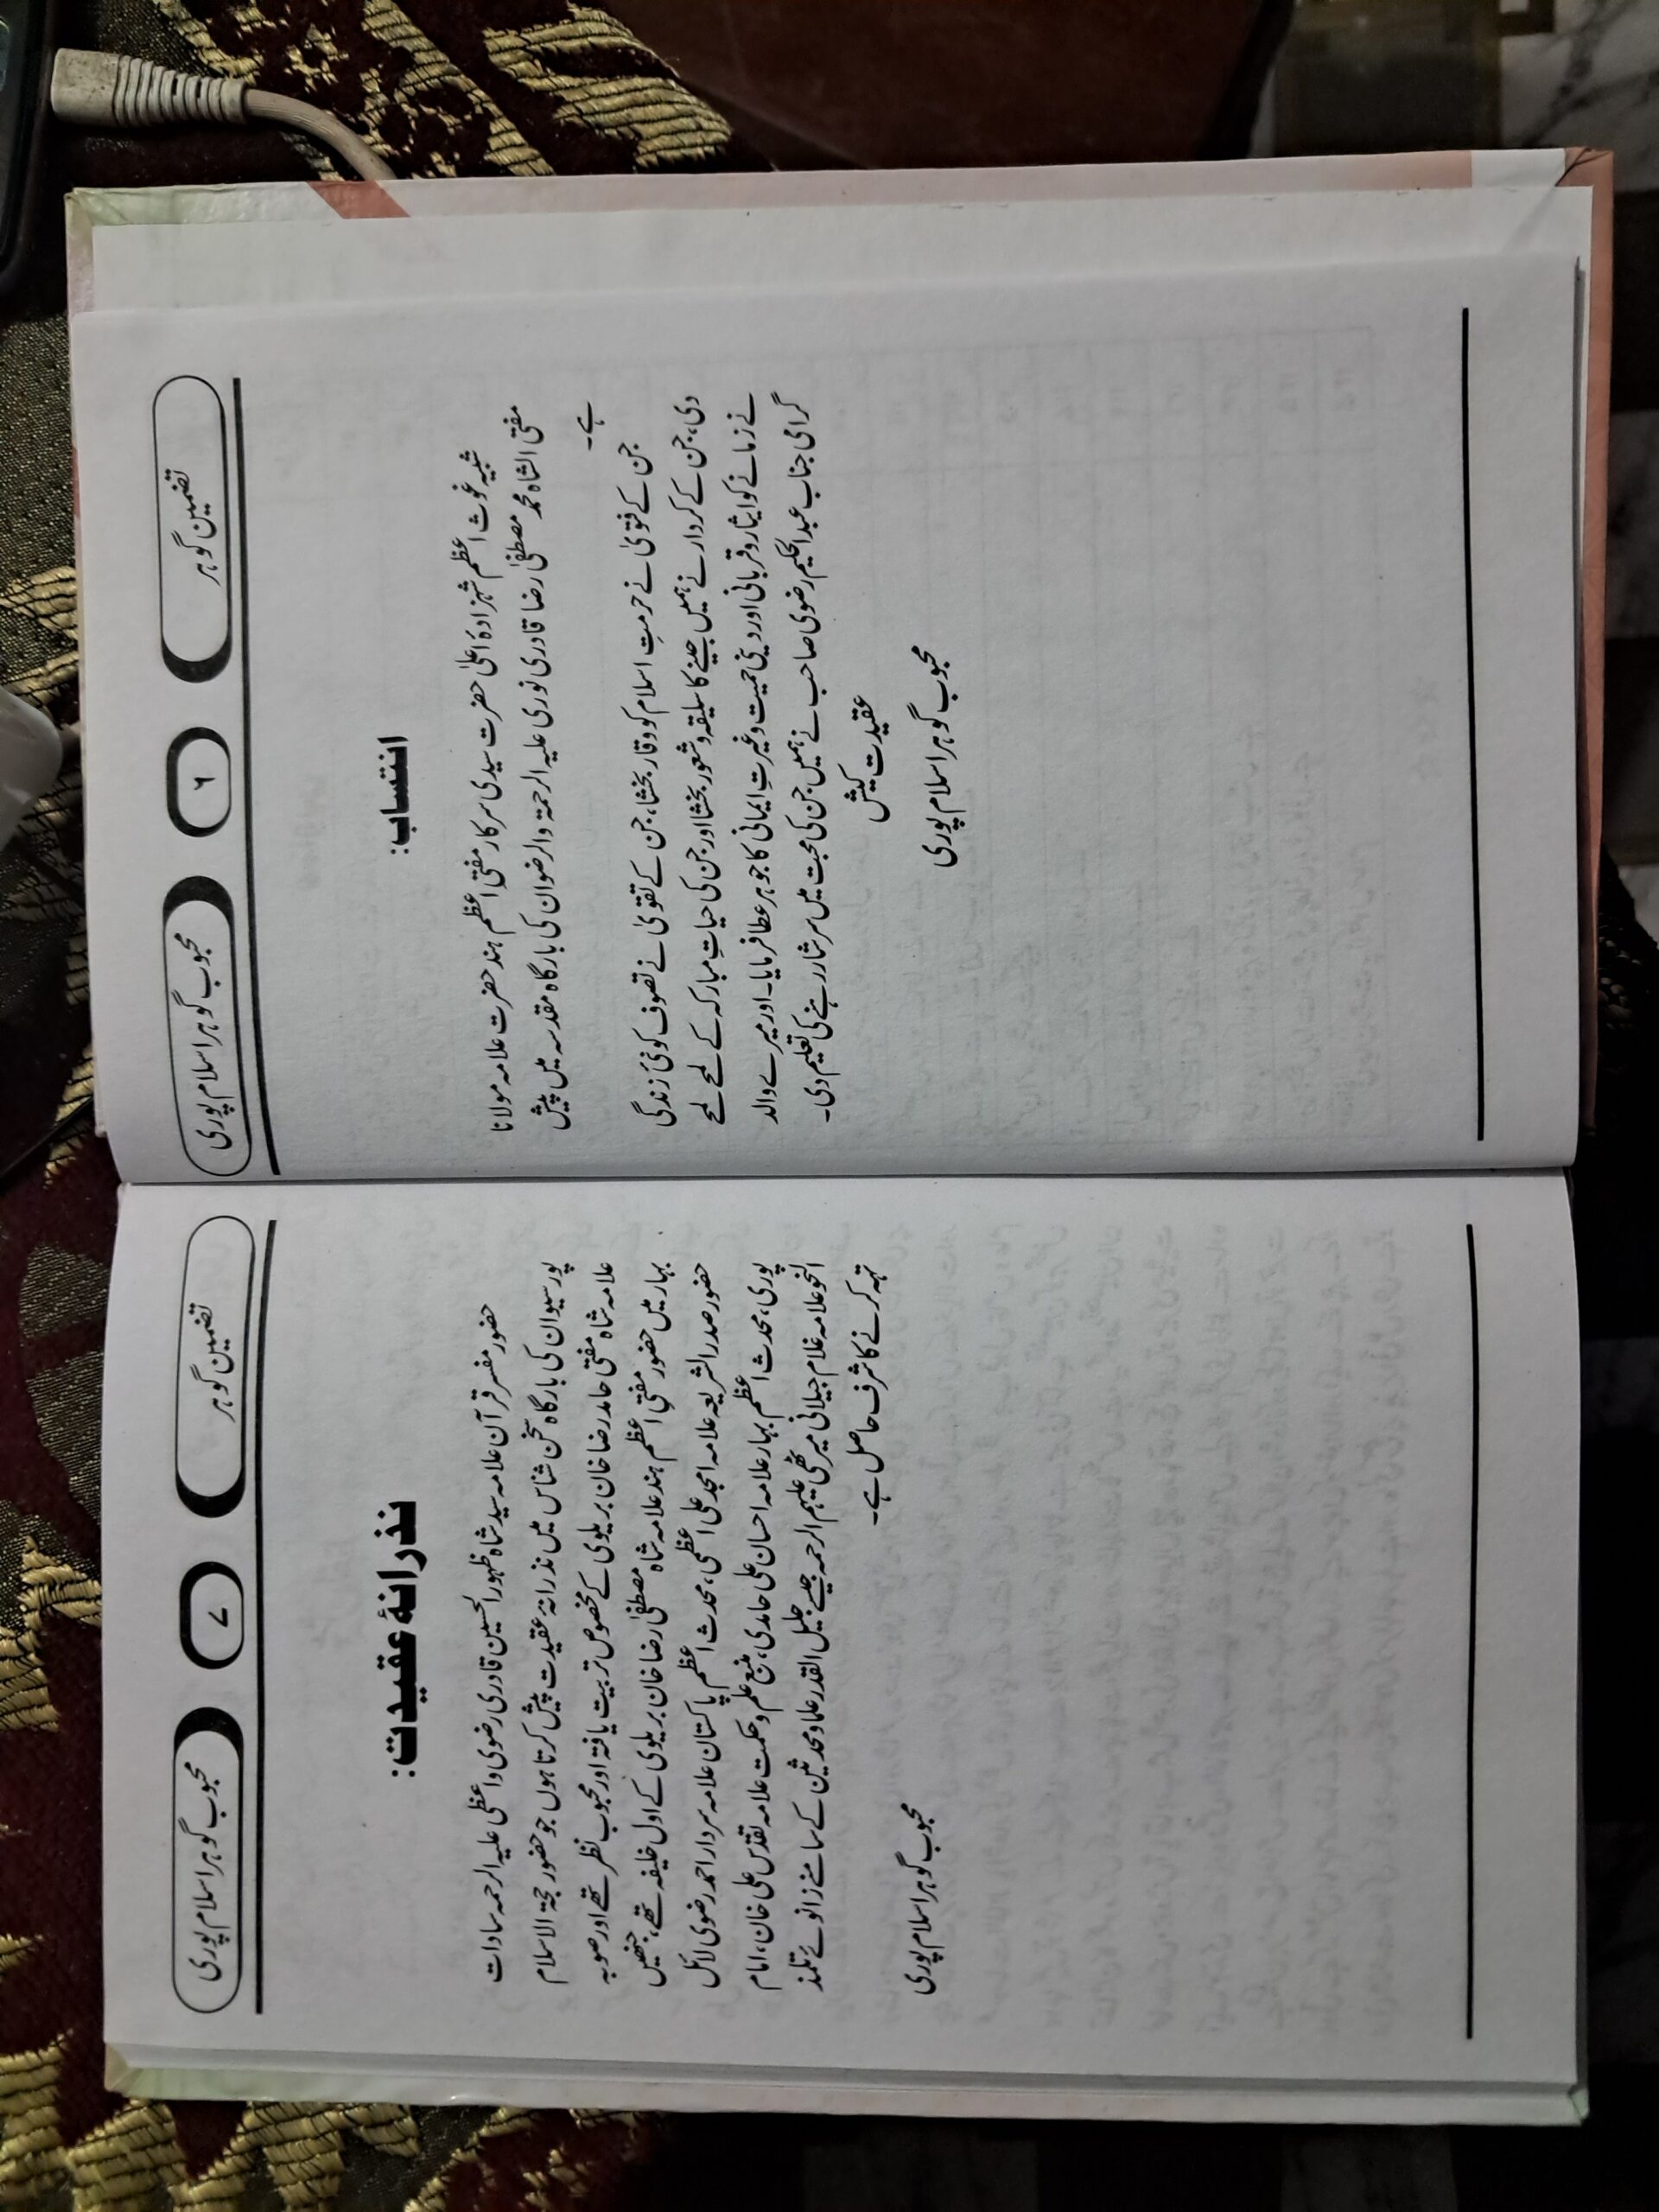 تضمین گوہر
۶
محبوب گوہر اسلام پوری
انتساب:
شبیہ غوث اعظم شہزادۂ اعلیٰ حضرت سیدی سرکار مفتی اعظم ہند حضرت علامہ مولانا
مفتی الشاہ محمد مصطفیٰ رضا قادری نوری علیہ الرحمۃ والرضوان کی بارگاہ مقدسہ میں پیش
ہے۔
جن کے فتویٰ نے حرمتِ اسلام کو وقار بخشا، جن کے تقویٰ نے تصوف کو نئی زندگی
دی، جن کے کردار نے ہمیں جینے کا سلیقہ و شعور بخشا اور جن کی حیاتِ مبارکہ کے لمحے لمحے
نے زمانے کو ایثار و قربانی اور دینی حمیت و غیرتِ ایمانی کا جوہر عطا فرمایا۔ اور میرے والد
گرامی جناب عبدالحکیم رضوی صاحب نے ہمیں جن کی محبت میں سرشار رہنے کی تعلیم دی۔
عقیدت کیش
محبوب گوہر اسلام پوری
تضمین گوہر
۷
محبوب گوہر اسلام پوری
نذرانۂ عقیدت:
حضور مفسر قرآن علامہ سید شاہ ظہور الحسین قادری رضوی واعظی علیہ الرحمہ سادات
پور سیوان کی بارگاہ سخن شناس میں نذرانۂ عقیدت پیش کرتا ہوں جو حضور حجۃ الاسلام
علامہ شاہ مفتی حامد رضا خان بریلوی کے مخصوص تربیت یافتہ اور محبوب نظر تھے اور صوبہ
بہار میں حضور مفتیِ اعظم ہند علامہ شاہ مصطفیٰ رضا خان بریلوی کے اول خلیفہ تھے، جنھیں
حضور صدر الشریعہ علامہ امجد علی اعظمی، محدث اعظم پاکستان علامہ سردار احمد رضوی لائل
پوری، محدث اعظم بہار علامہ احسان علی حامدی، منبع علم و حکمت علامہ تقدس علی خان، امام
النحو علامہ غلام جیلانی میرٹھی علیہم الرحمہ جیسے جلیل القدر علما و محدثین کے سامنے زانوئے تلمذ
تہہ کرنے کا شرف حاصل ہے۔
محبوب گوہر اسلام پوری